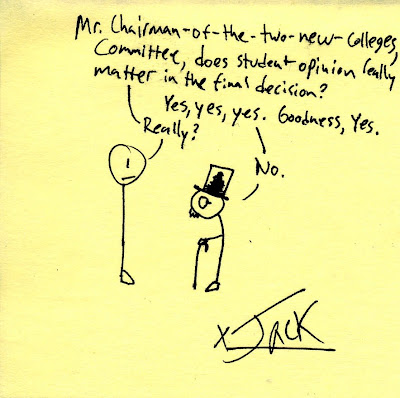 Mr. Chairman-of-the-two-new-colleges,
Committee, does student opinion really
matter in the final decision?
Yes, yes, yes. Goodness, yes.
Really?
No.
x Jack